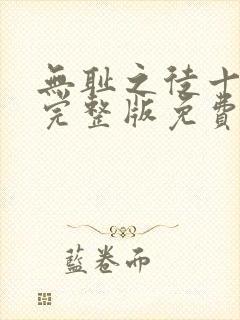 無耻之徒十
完整版免費
藍卷而